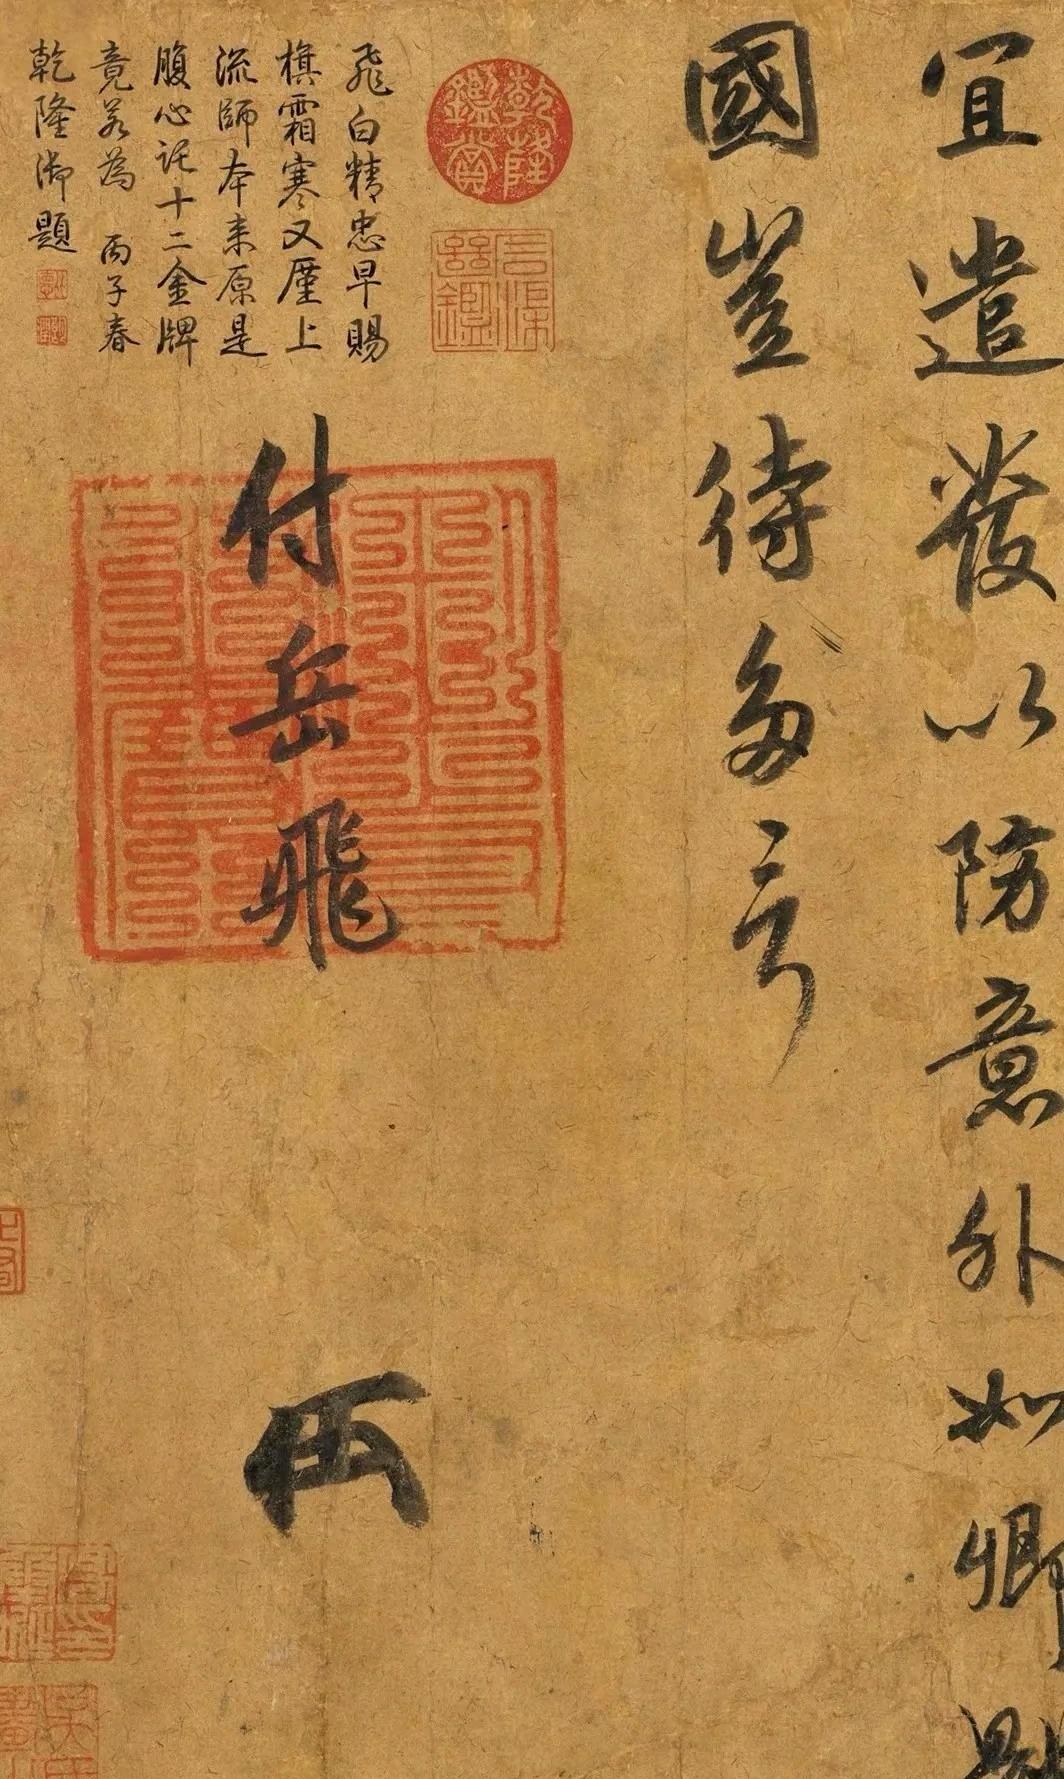 宜遣發以防意外如卿
國豈待多言
付岳飛
飛白精忠早賜
旗霜寒又厪上
流師本来原是
腹心託十二金牌
竟若為 丙子春
乾隆御題
乾隆鑑賞